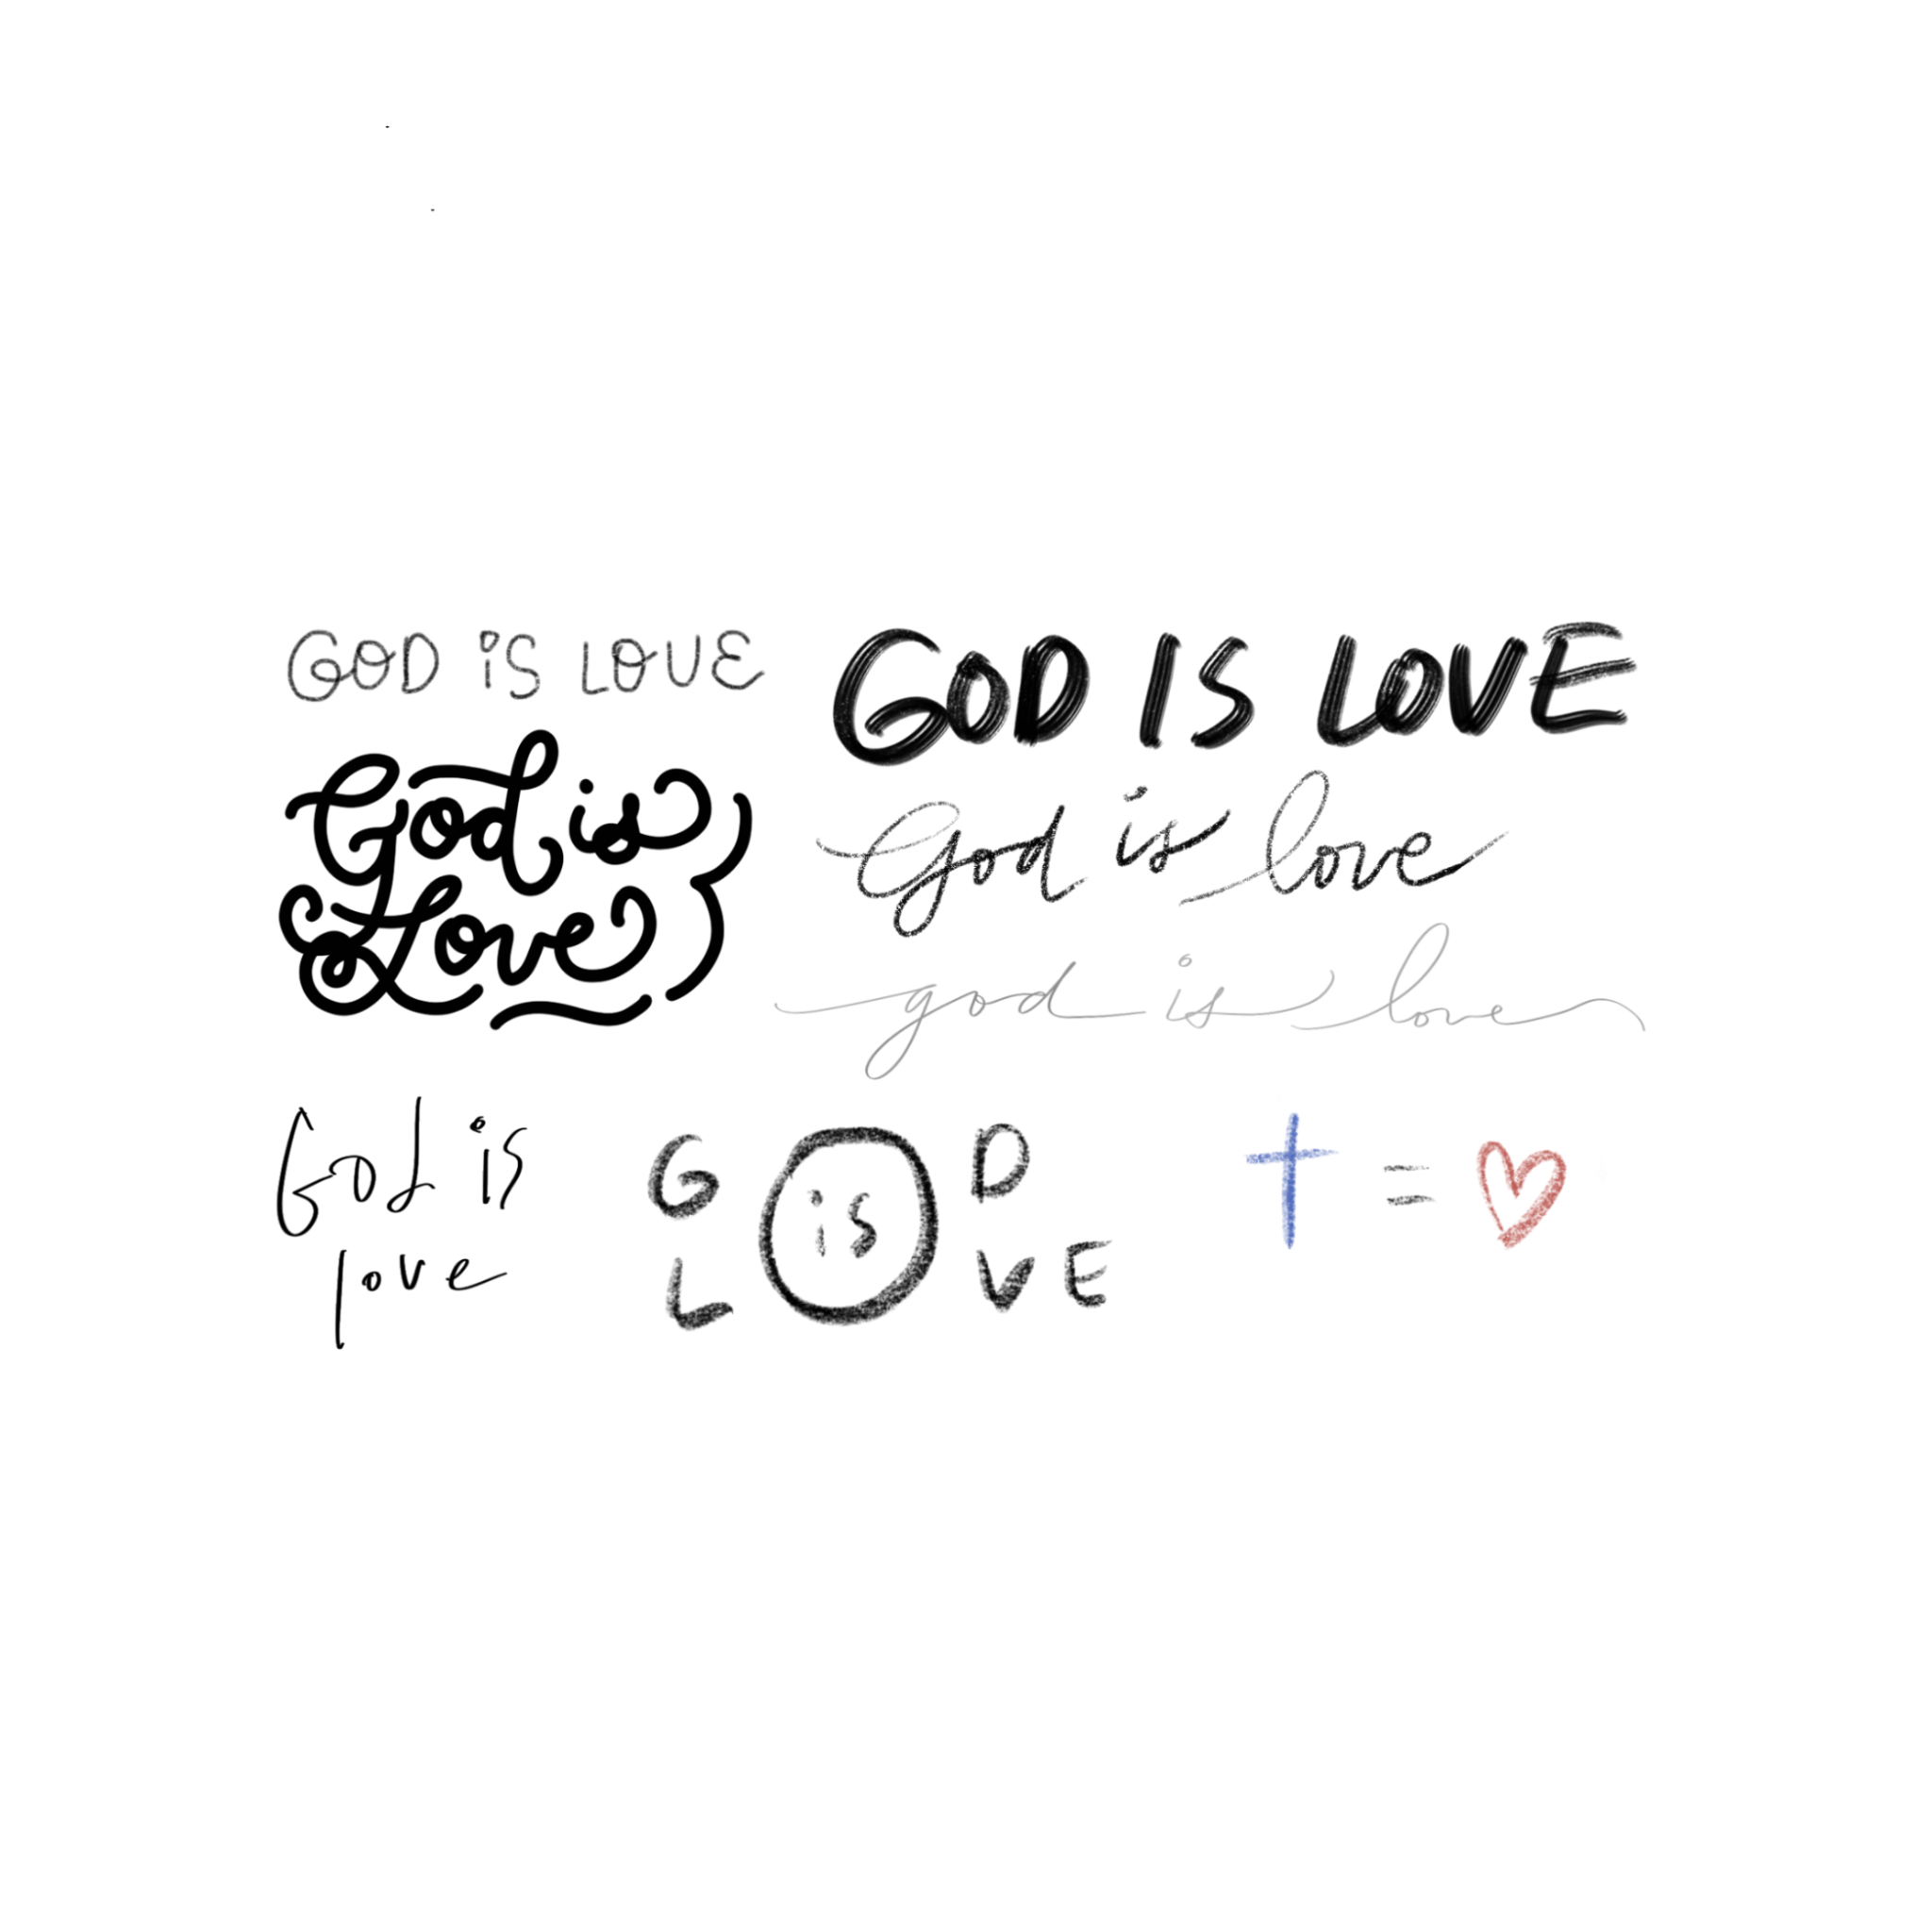 GOD iS LOVE
GOD IS LOVE
God is
Love
God is love
god is love
God is
love
GOD
is
LOVE
=